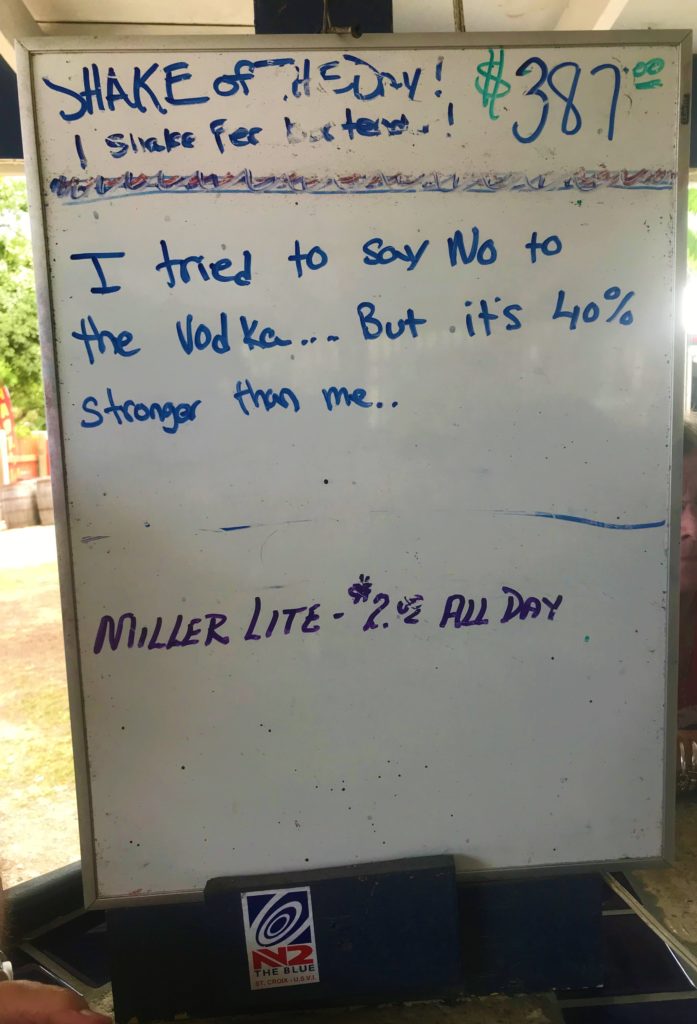 SHAKE of THE DAY! $387.00
1 Shake Per
I tried to say No to
the Vodka... But it's 40%
stronger than me..
MILLER LITE - $2. ALL DAY
N2
THE BLUE
ST. CROIX - U.S.V.I.